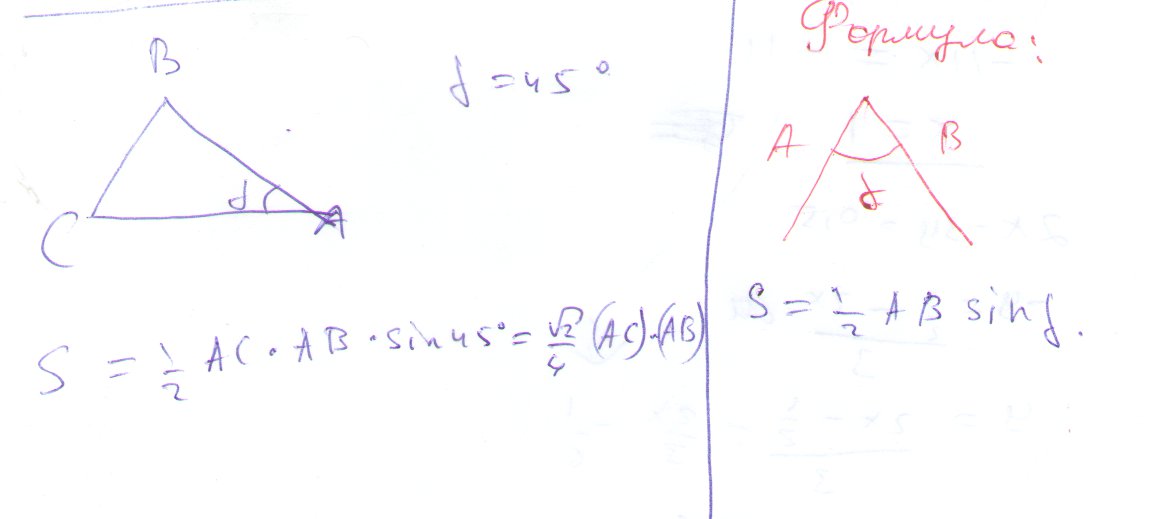 B
γ = 45°
γ
C
A
S = 1/2 AC · AB · sin 45° = √2/4 (AC)·(AB)
Формула:
A B
γ
S = 1/2 A B sin γ.